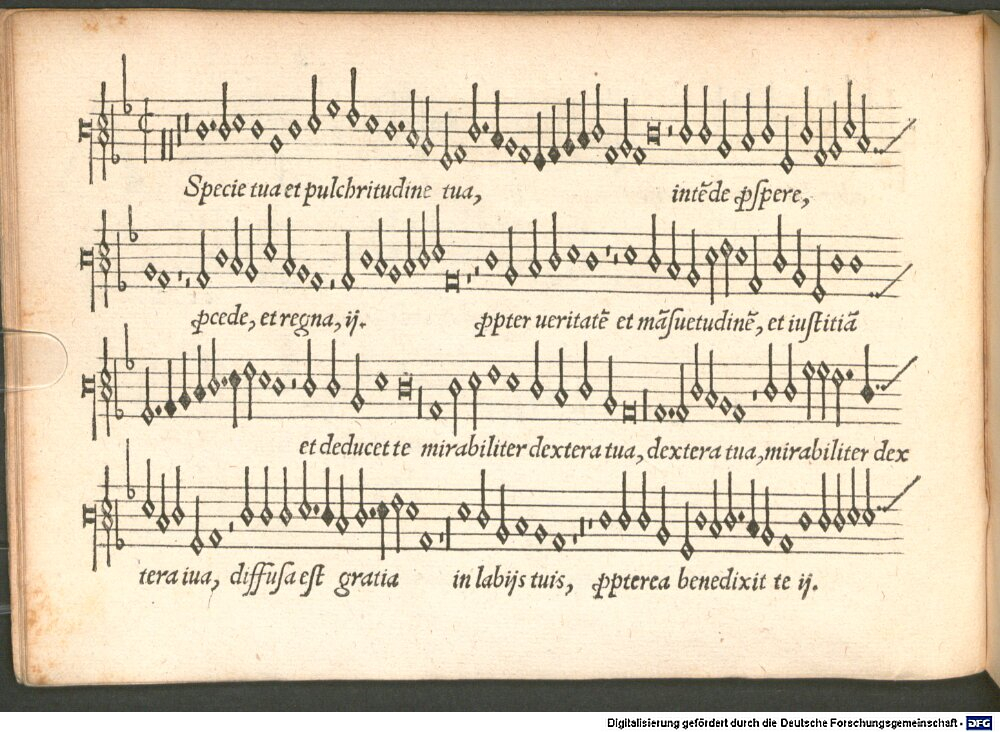 Specie tua et pulchritudine tua, intēde ꝓspere,
ꝓcede, et regna, ij. ꝓpter ueritatē et māsuetudinē, et iustitiā
et deducet te mirabiliter dextera tua, dextera tua, mirabiliter dex
tera iua, diffusa est gratia in labijs tuis, ꝓpterea benedixit te ij.
Digitalisierung gefördert durch die Deutsche Forschungsgemeinschaft - DFG